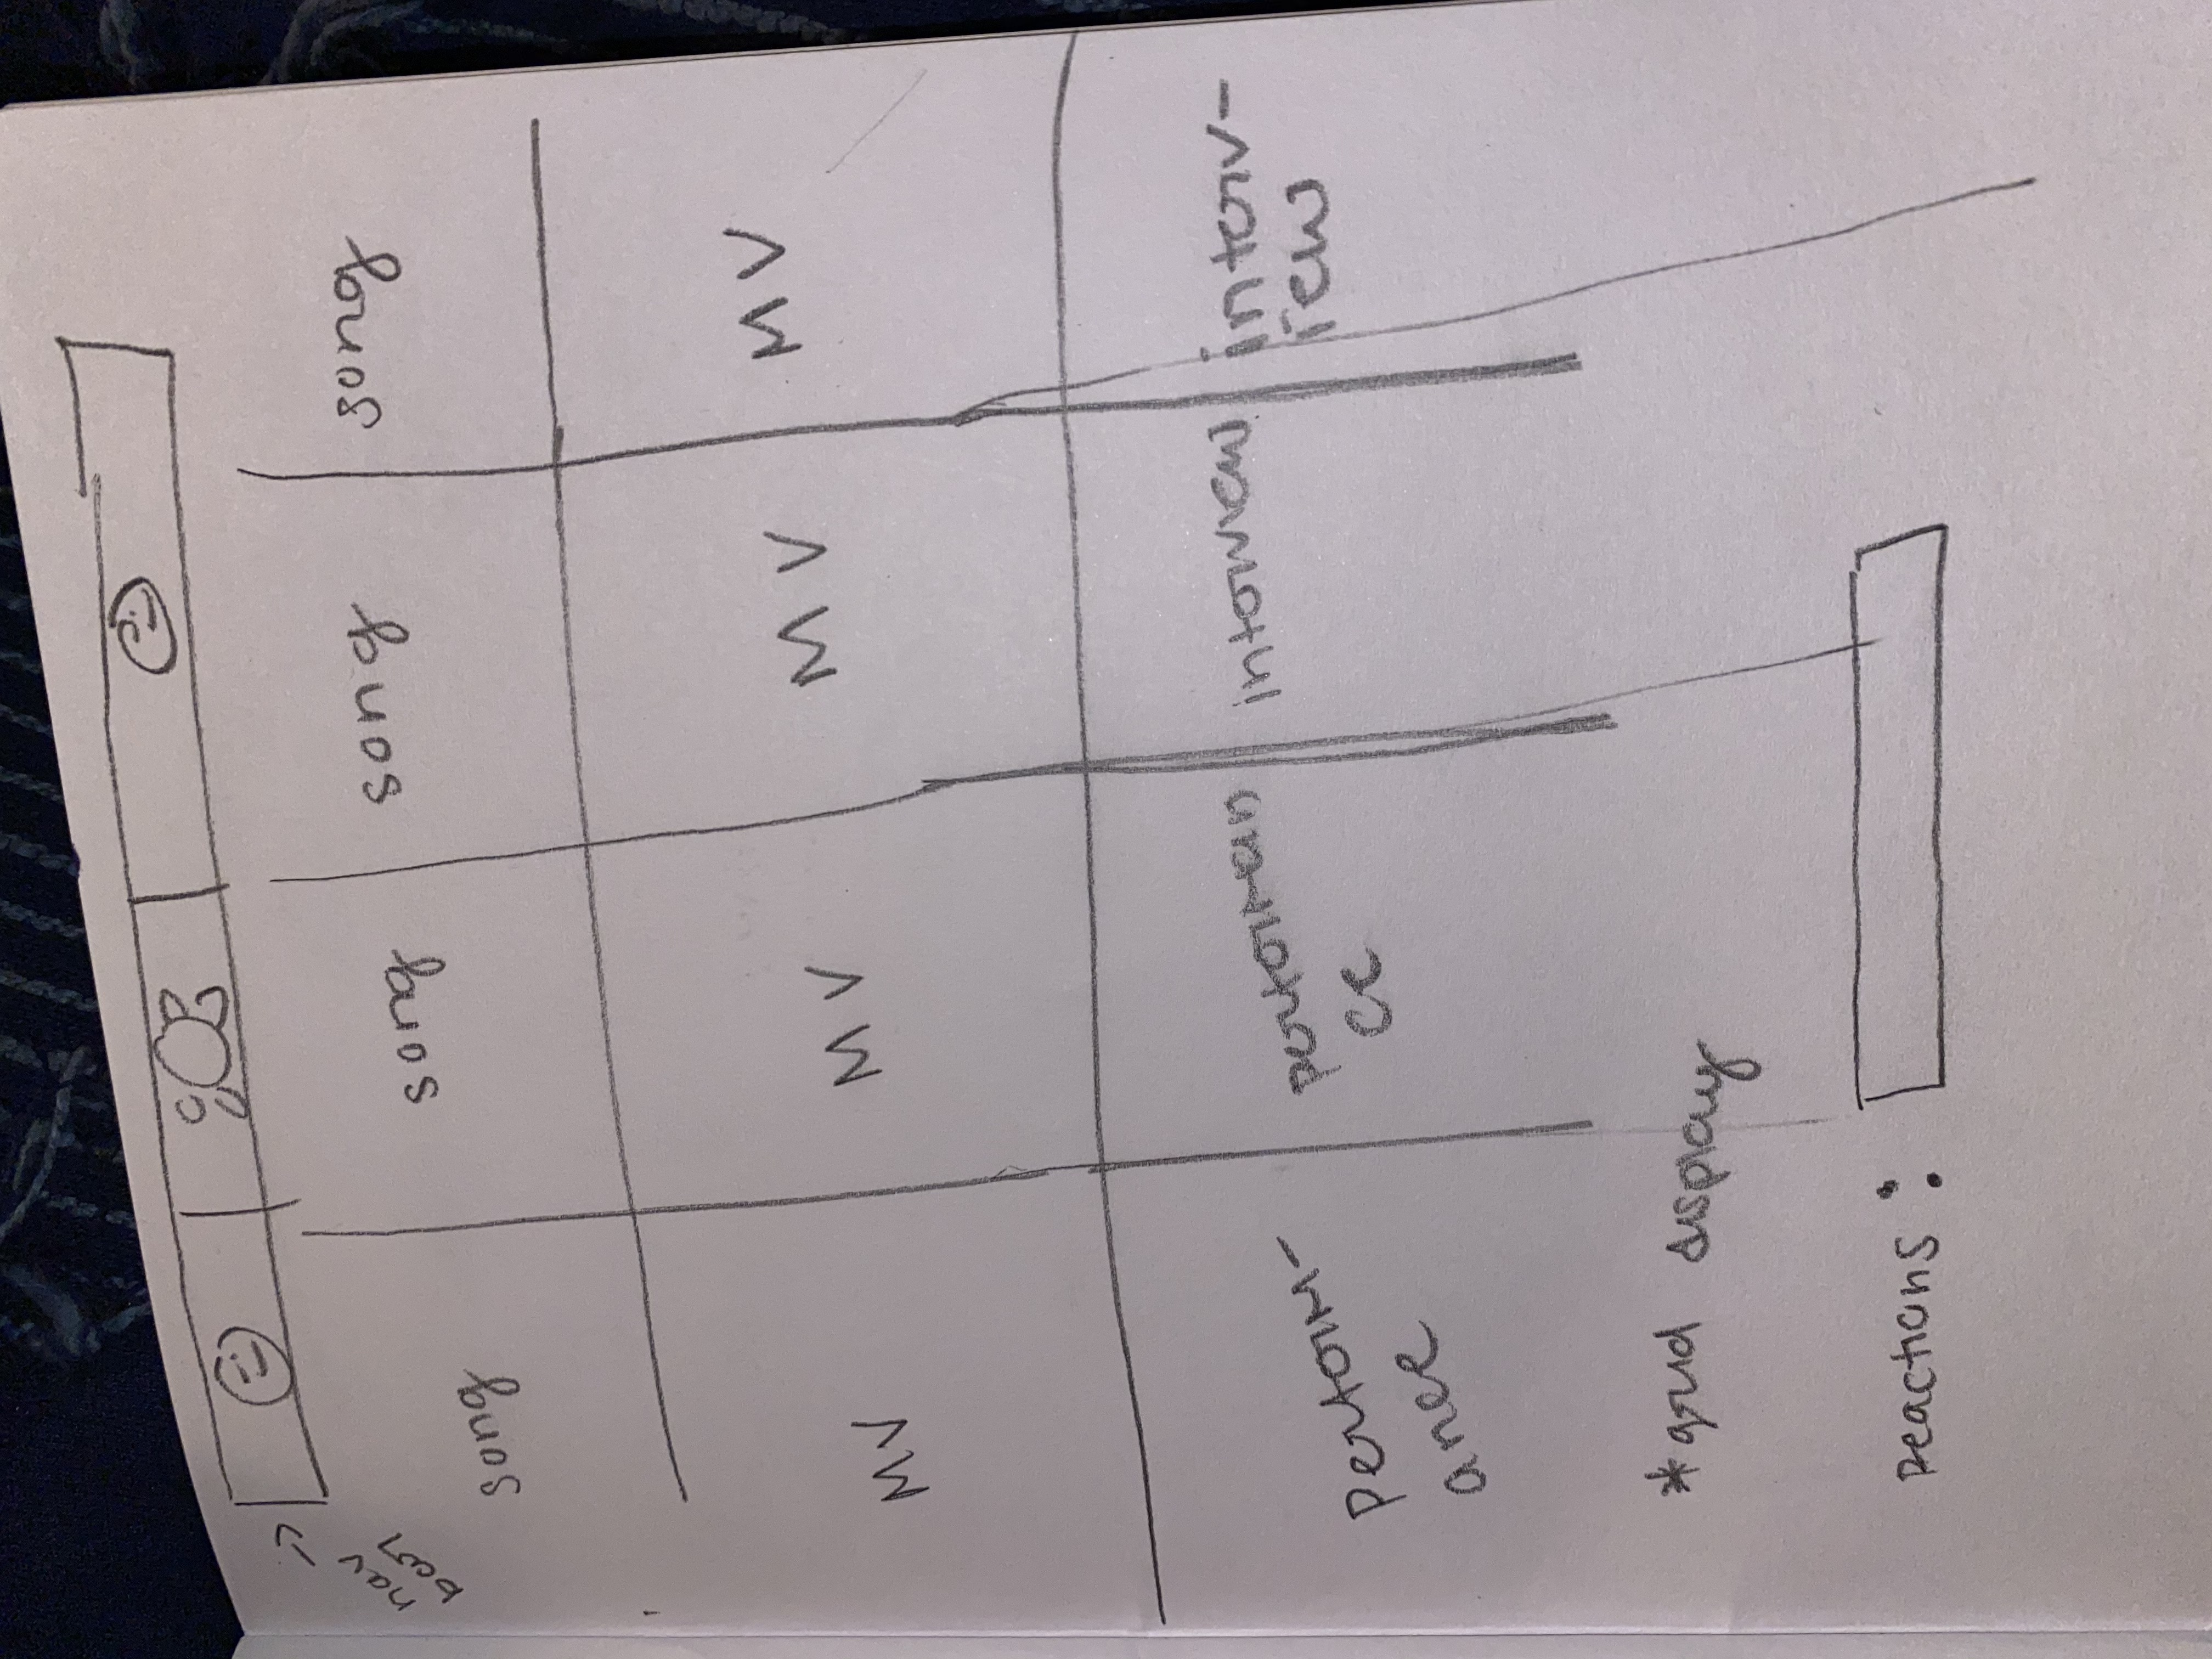 nav
bar
song song song song
MV MV MV MV
perform- performan interview interv-
ance ce iew
*grid display
reactions: